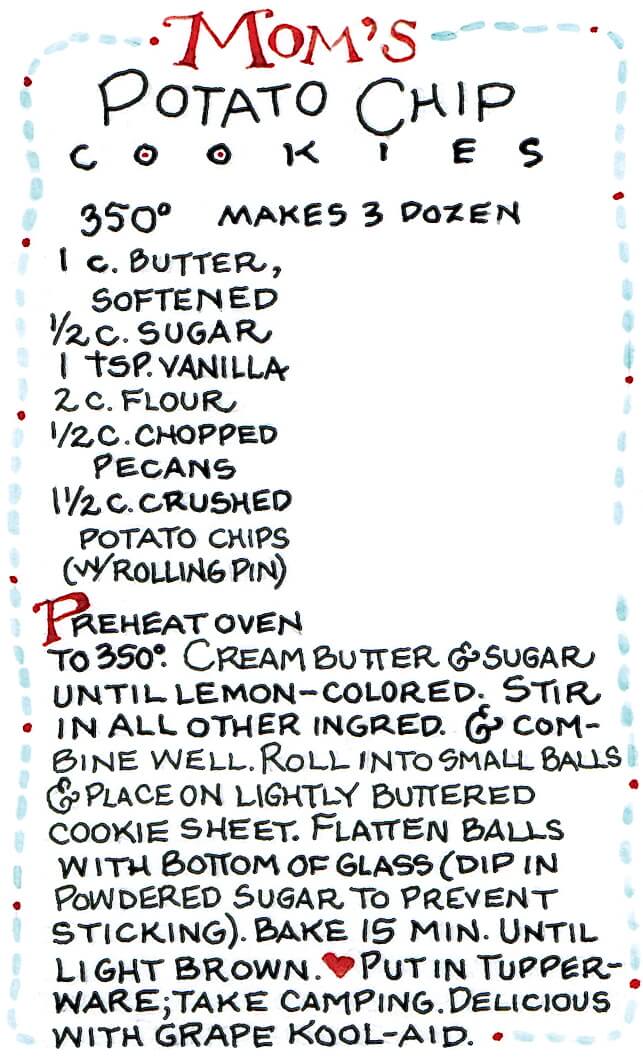 MOM'S
POTATO CHIP
COOKIES
350° MAKES 3 DOZEN
1 C. BUTTER,
SOFTENED
1/2 C. SUGAR
1 tSP. VANILLA
2 C. FLOUR
1/2 C. CHOPPED
PECANS
1 1/2 C. CRUSHED
POTATO CHIPS
(W/ROLLING PIN)
PREHEAT OVEN
TO 350°. CREAM BUTTER & SUGAR
UNTIL LEMON-COLORED. STIR
IN ALL OTHER INGRED. & COM-
BINE WELL. ROLL INTO SMALL BALLS
& PLACE ON LIGHTLY BUTTERED
COOKIE SHEET. FLATTEN BALLS
WITH BOTTOM OF GLASS (DIP IN
POWDERED SUGAR TO PREVENT
STICKING). BAKE 15 MIN. UNTIL
LIGHT BROWN. ♥ PUT IN TUPPER-
WARE; TAKE CAMPING. DELICIOUS
WITH GRAPE KOOL-AID.